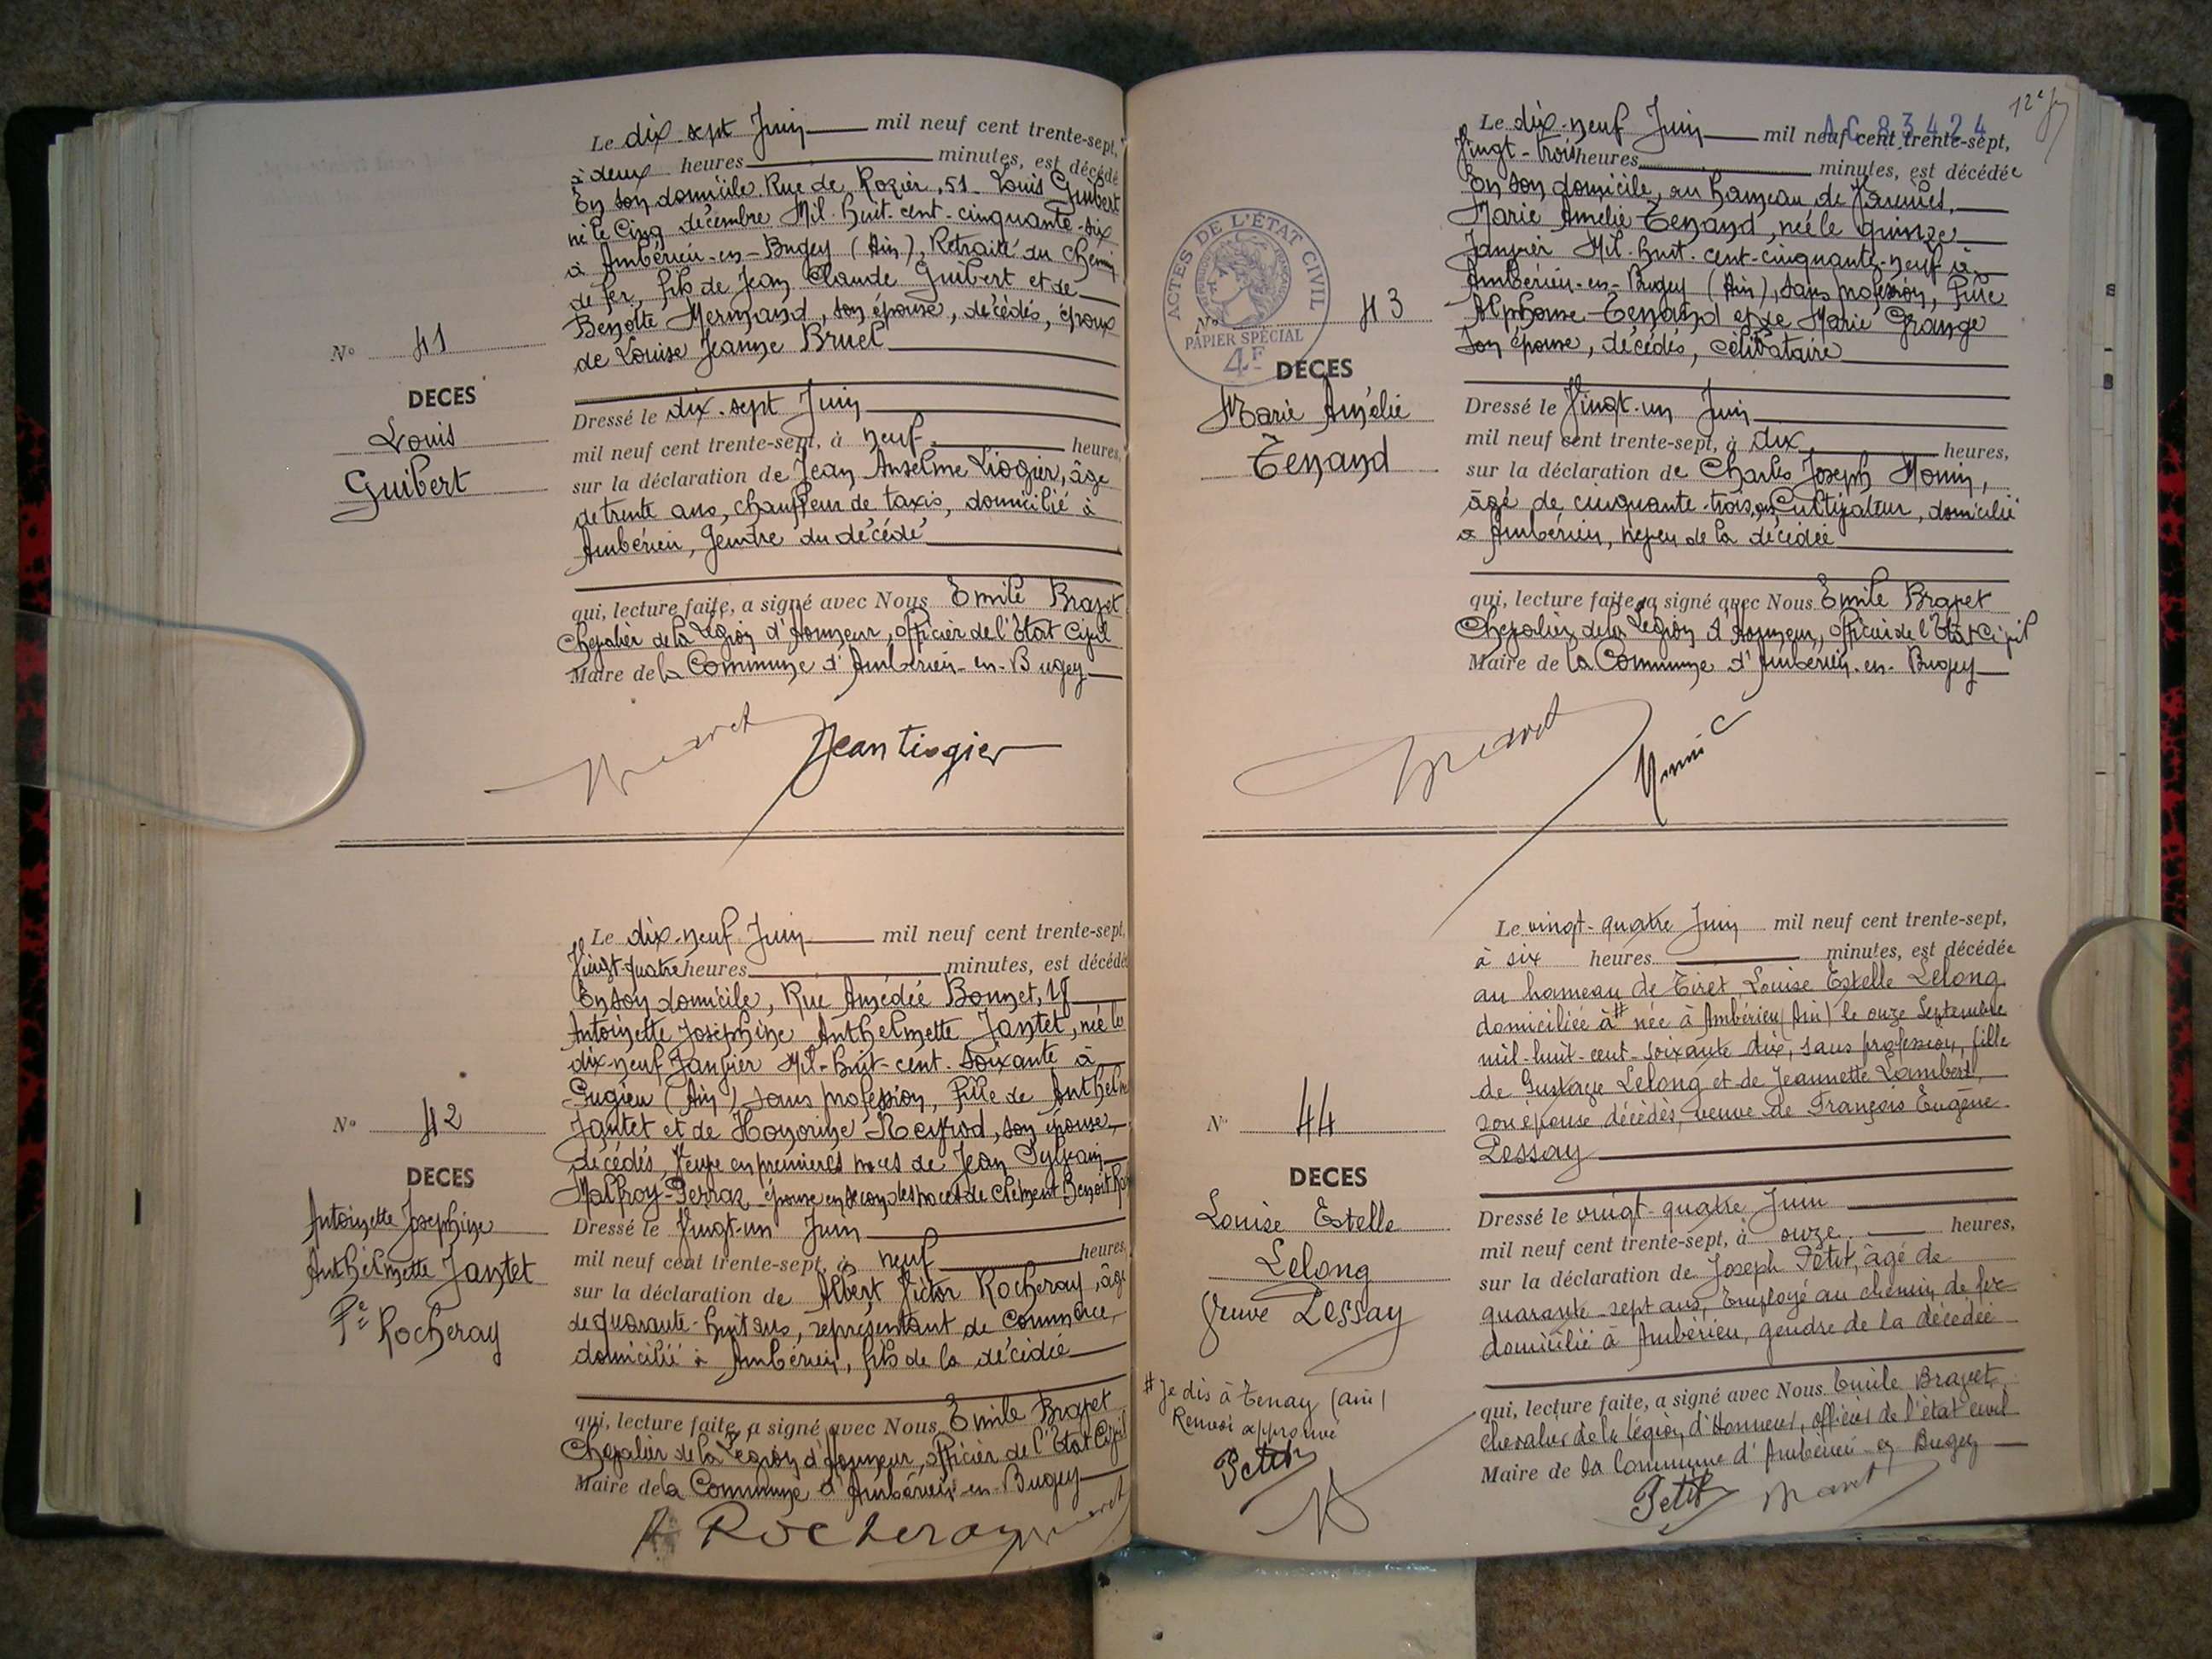 Le dix-sept Juin mil neuf cent trente-sept,
à deux heures minutes, est décédé
En son domicile, Rue de Rozier, 51 Louis Guibert
né le Cinq décembre Mil-huit-cent-cinquante-six
à Ambérieu-en-Bugey (Ain), Retraité du Chemin
de fer, fils de Jean Claude Guibert et de
Benoîte Mermand, son épouse, décédés, époux
de Louise Jeanne Bruel
N° 41
DECES
Louis
Guibert
Dressé le dix-sept Juin
mil neuf cent trente-sept, à neuf heures,
sur la déclaration de Jean Anselme Liogier, âgé
de trente ans, chauffeur de taxis, domicilié à
Ambérieu, Gendre du décédé
qui, lecture faite, a signé avec Nous Emile Bravet
Chevalier de la Légion d'Honneur, officier de l'Etat Civil
Maire de la Commune d'Ambérieu-en-Bugey
Jean Liogier
Le dix-neuf Juin mil neuf cent trente-sept,
Vingt-quatre heures minutes, est décédé
En son domicile, Rue Amédée Bonnet,
Antoinette Joséphine Anthelmette Jantet, née le
dix-neuf Janvier Mil-huit-cent-soixante à
Pugieu (Ain) sans profession, fille de Anthelme
Jantet et de Honorine Reyrod, son épouse,
décédés, Veuve en premières noces de Jean Sylvain
Malfroy-Perraz épouse en secondes noces de Clément Benoit
N° 42
DECES
Antoinette Josephine
Anthelmette Jantet
Rocheray
Dressé le Vingt-un Juin
mil neuf cent trente-sept, à neuf heures,
sur la déclaration de Albert Victor Rocheray, âgé
de quarante-huit ans, représentant de commerce,
domicilié à Ambérieu, fils de la décédée
qui, lecture faite, a signé avec Nous Emile Bravet
Chevalier de la Légion d'Honneur, officier de l'Etat Civil
Maire de la Commune d'Ambérieu-en-Bugey
A Rocheray
AC 83424
Le dix-neuf Juin mil neuf cent trente-sept,
Vingt-trois heures minutes, est décédée
En son domicile, au hameau de Vareilles,
Marie Amélie Tenand, née le quinze
Janvier Mil-huit-cent-cinquante-neuf à
Ambérieu-en-Bugey (Ain), sans profession, fille
Alphonse Tenand et de Marie Grange
son épouse, décédés, célibataire
ACTES DE L'ÉTAT CIVIL
PAPIER SPÉCIAL
4F
N° 43
DÉCES
Marie Amélie
Tenand
Dressé le Vingt-un Juin
mil neuf cent trente-sept, à dix heures,
sur la déclaration de Charles Joseph Monin,
âgé de cinquante-trois ans Cultivateur, domicilié
à Ambérieu, neveu de la décédée
qui, lecture faite, a signé avec Nous Emile Bravet
Chevalier de la Légion d'Honneur, officier de l'Etat Civil
Maire de la Commune d'Ambérieu-en-Bugey
Le vingt-quatre Juin mil neuf cent trente-sept,
à six heures minutes, est décédée
au hameau de Tiret, Louise Estelle Lelong
domiciliée à # née à Ambérieu (Ain) le onze Septembre
mil-huit-cent-soixante dix, sans profession, fille
de Gustave Lelong et de Jeannette Lambert,
son épouse décédés, veuve de François Eugène
Lessay
N° 44
DECES
Louise Estelle
Lelong
Veuve Lessay
Dressé le vingt-quatre Juin
mil neuf cent trente-sept, à onze heures,
sur la déclaration de Joseph Petit, âgé de
quarante-sept ans, Employé au chemin de fer
domicilié à Ambérieu, gendre de la décédée
# Je dis à Tenay (ain)
Renvoi approuvé
Petit
qui, lecture faite, a signé avec Nous Emile Bravet,
chevalier de la légion d'Honneur, officier de l'état civil
Maire de la Commune d'Ambérieu en Bugey
Petit